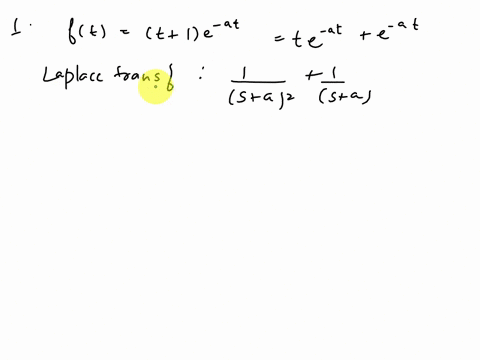 1. f(t) = (t+1)e^{-at} = te^{-at} + e^{-at}
Laplace transf : \frac{1}{(s+a)^2} + \frac{1}{(s+a)}